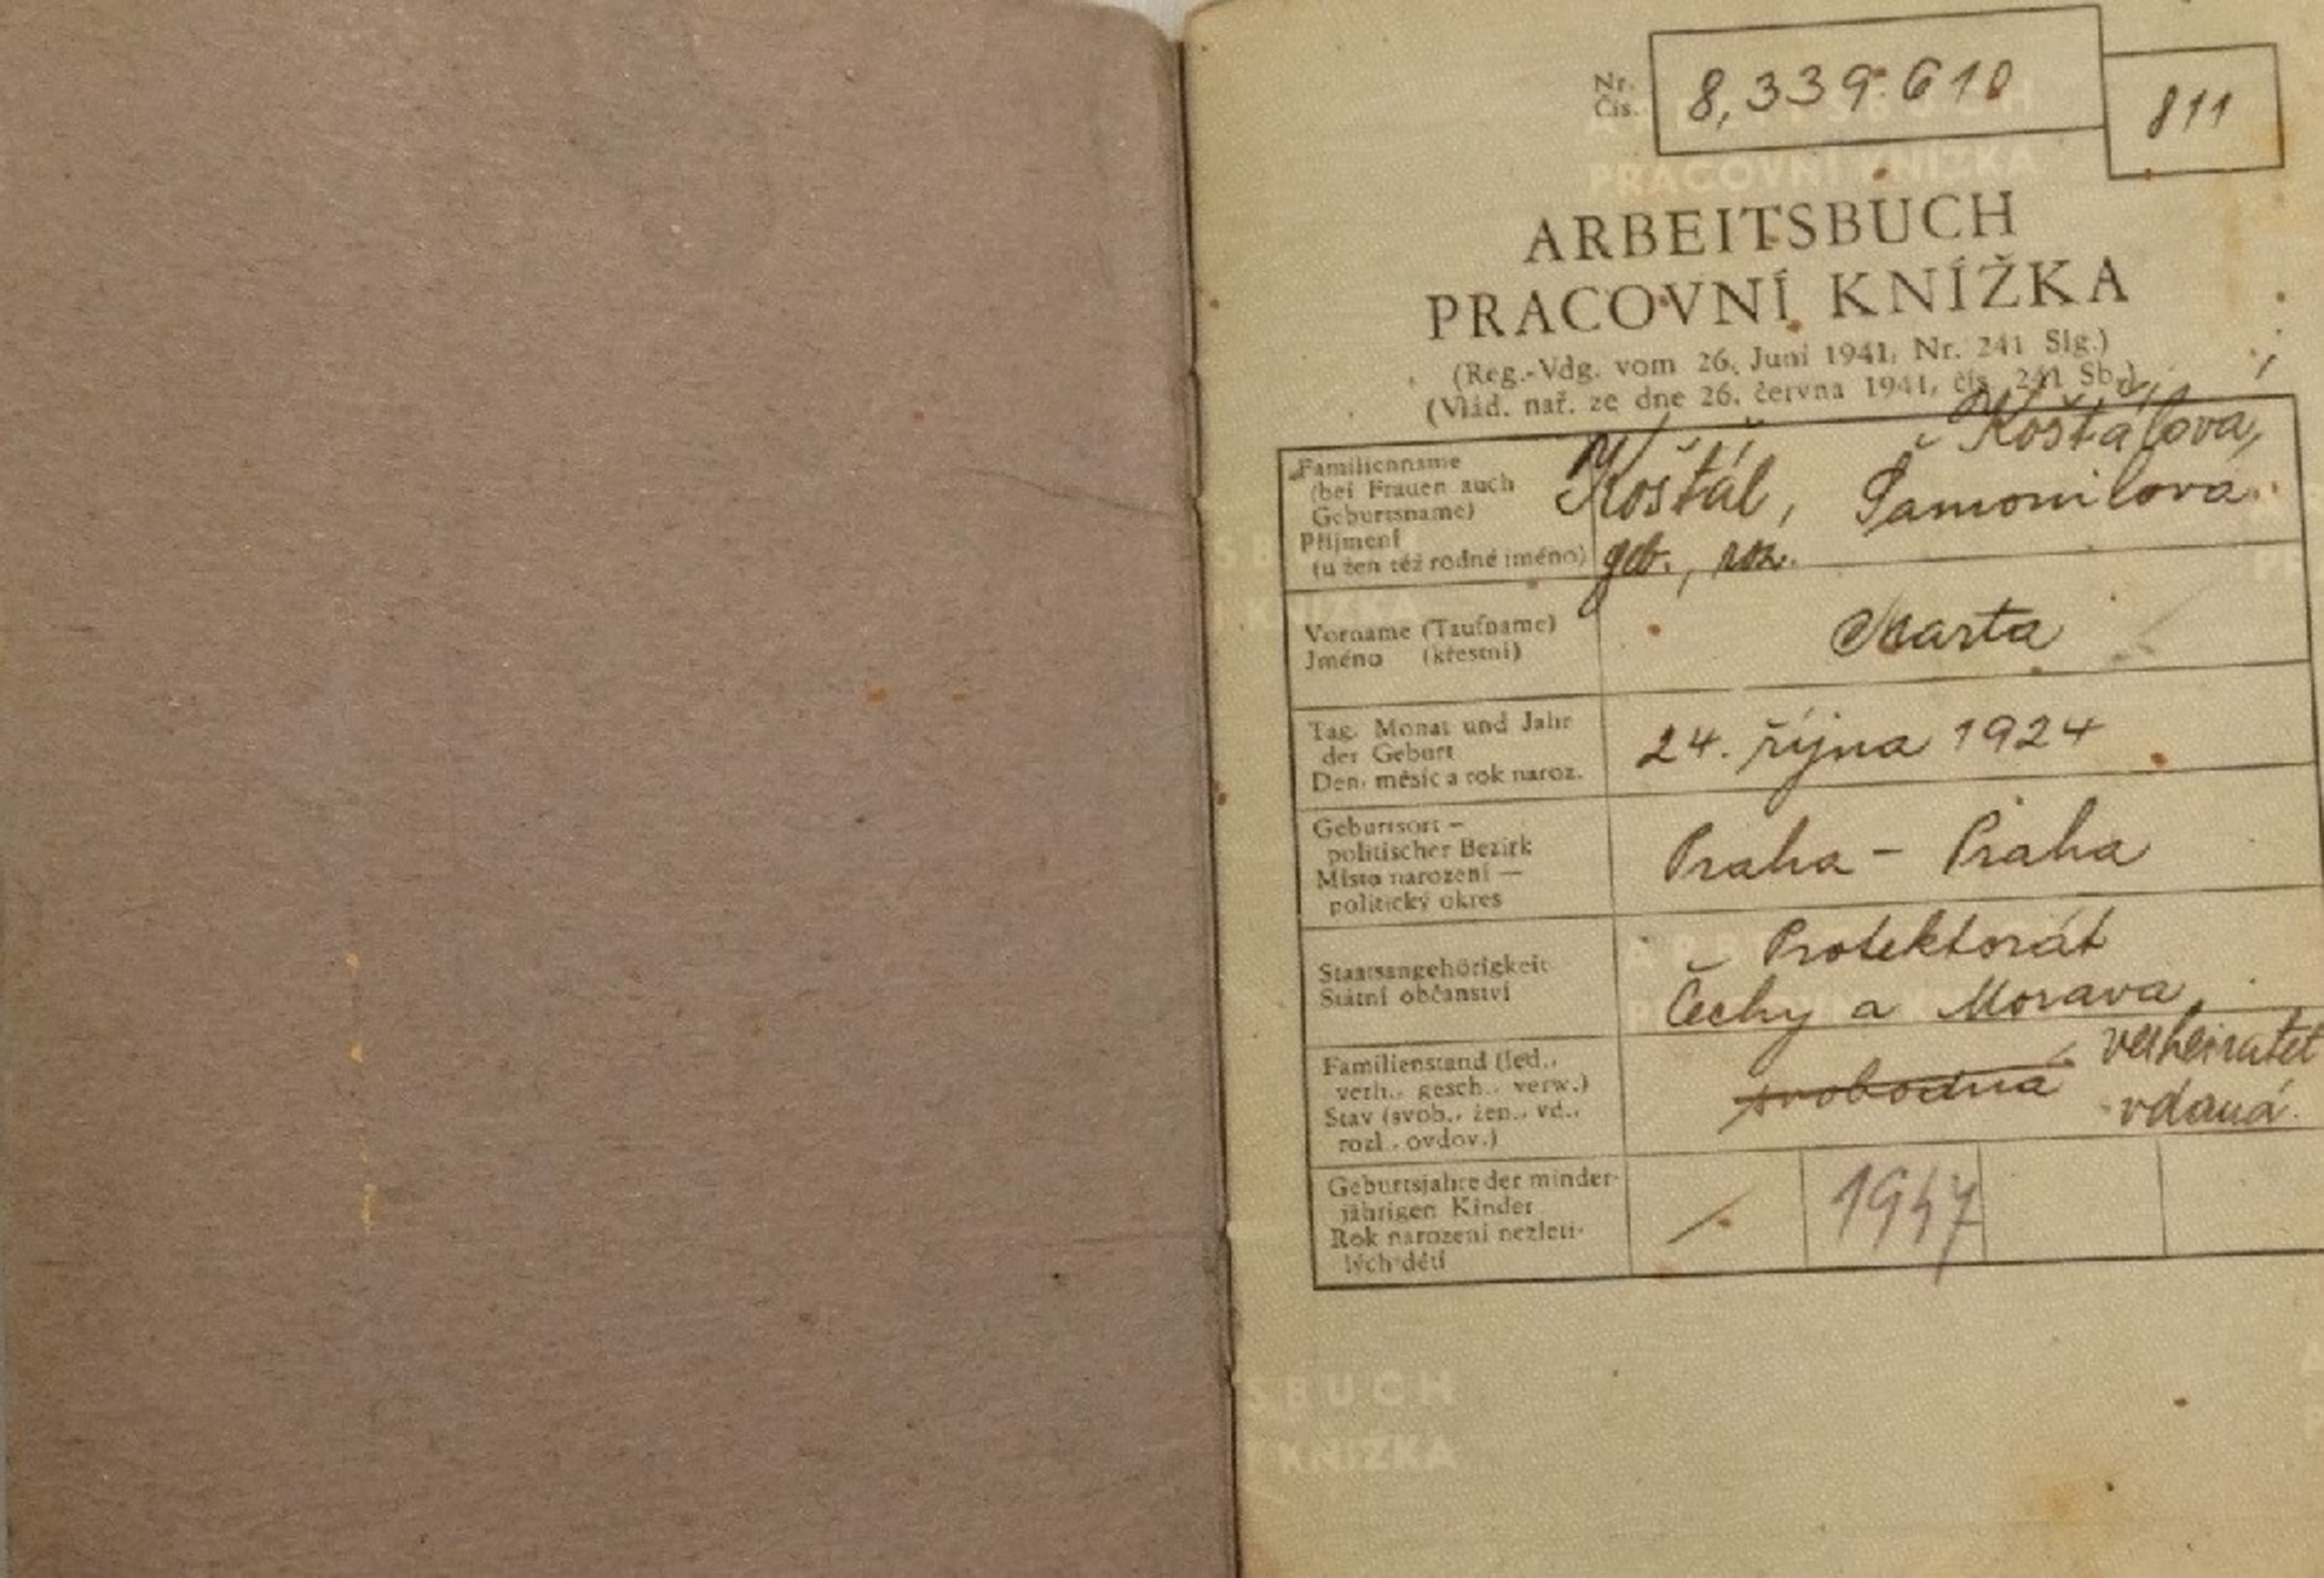 Nr.
Čís.
8,339.610
811
ARBEITSBUCH
PRACOVNÍ KNÍŽKA
ARBEITSBUCH
PRACOVNÍ KNÍŽKA
(Reg.-Vdg. vom 26. Juni 1941, Nr. 241 Slg.)
(Vlád. nař. ze dne 26. června 1941, čís. 241 Sb.)
Familienname
(bei Frauen auch
Geburtsname)
Příjmení
(u žen též rodné jméno)
Košťálová,
Košťál, Šamonilová
geb., roz.
Vorname (Taufname)
Jméno (křestní)
Marta
Tag, Monat und Jahr
der Geburt
Den, měsíc a rok naroz.
24. října 1924
Geburtsort –
politischer Bezirk
Místo narození —
politický okres
Praha – Praha
Staatsangehörigkeit
Státní občanství
Protektorát
Čechy a Morava
Familienstand (led.,
verh., gesch., verw.)
Stav (svob., žen., vd.,
rozl., ovdov.)
svobodná
verheiratet
vdaná.
Geburtsjahre der minder-
jährigen Kinder
Rok narození nezleti-
lých dětí
1947
SBUCH
KNÍŽKA
SBUCH
Í KNÍŽKA